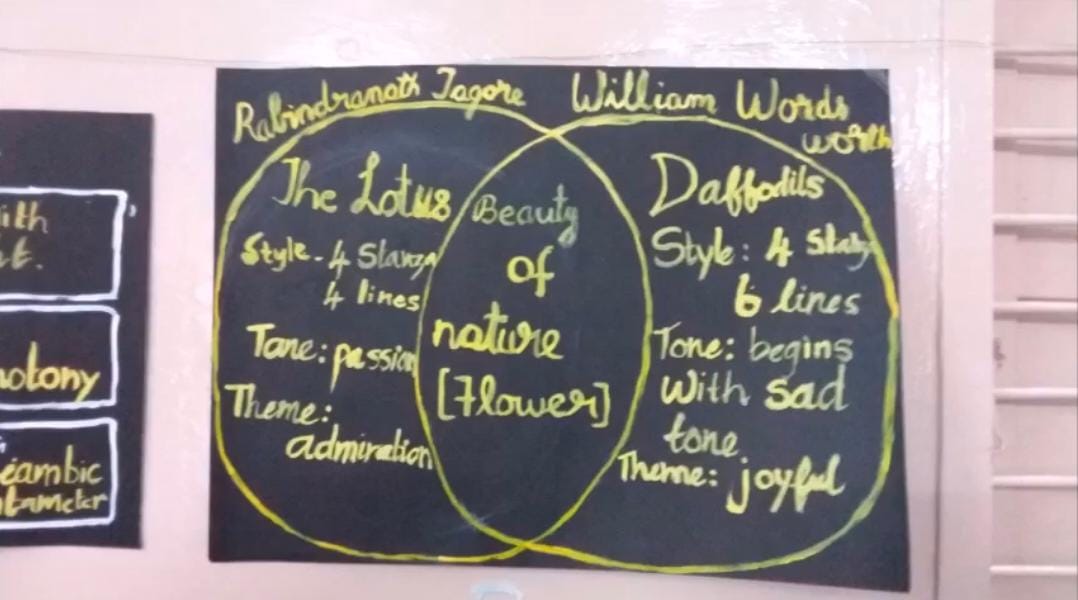 Rabindranath Tagore
The Lotus
Style - 4 Stanza
4 lines
Tone: passion
Theme:
admiration
Beauty
of
nature
[Flower]
William Words
worth
Daffodils
Style: 4 Stanza
6 lines
Tone: begins
with sad
tone
Theme: joyful
ith
notony
iambic